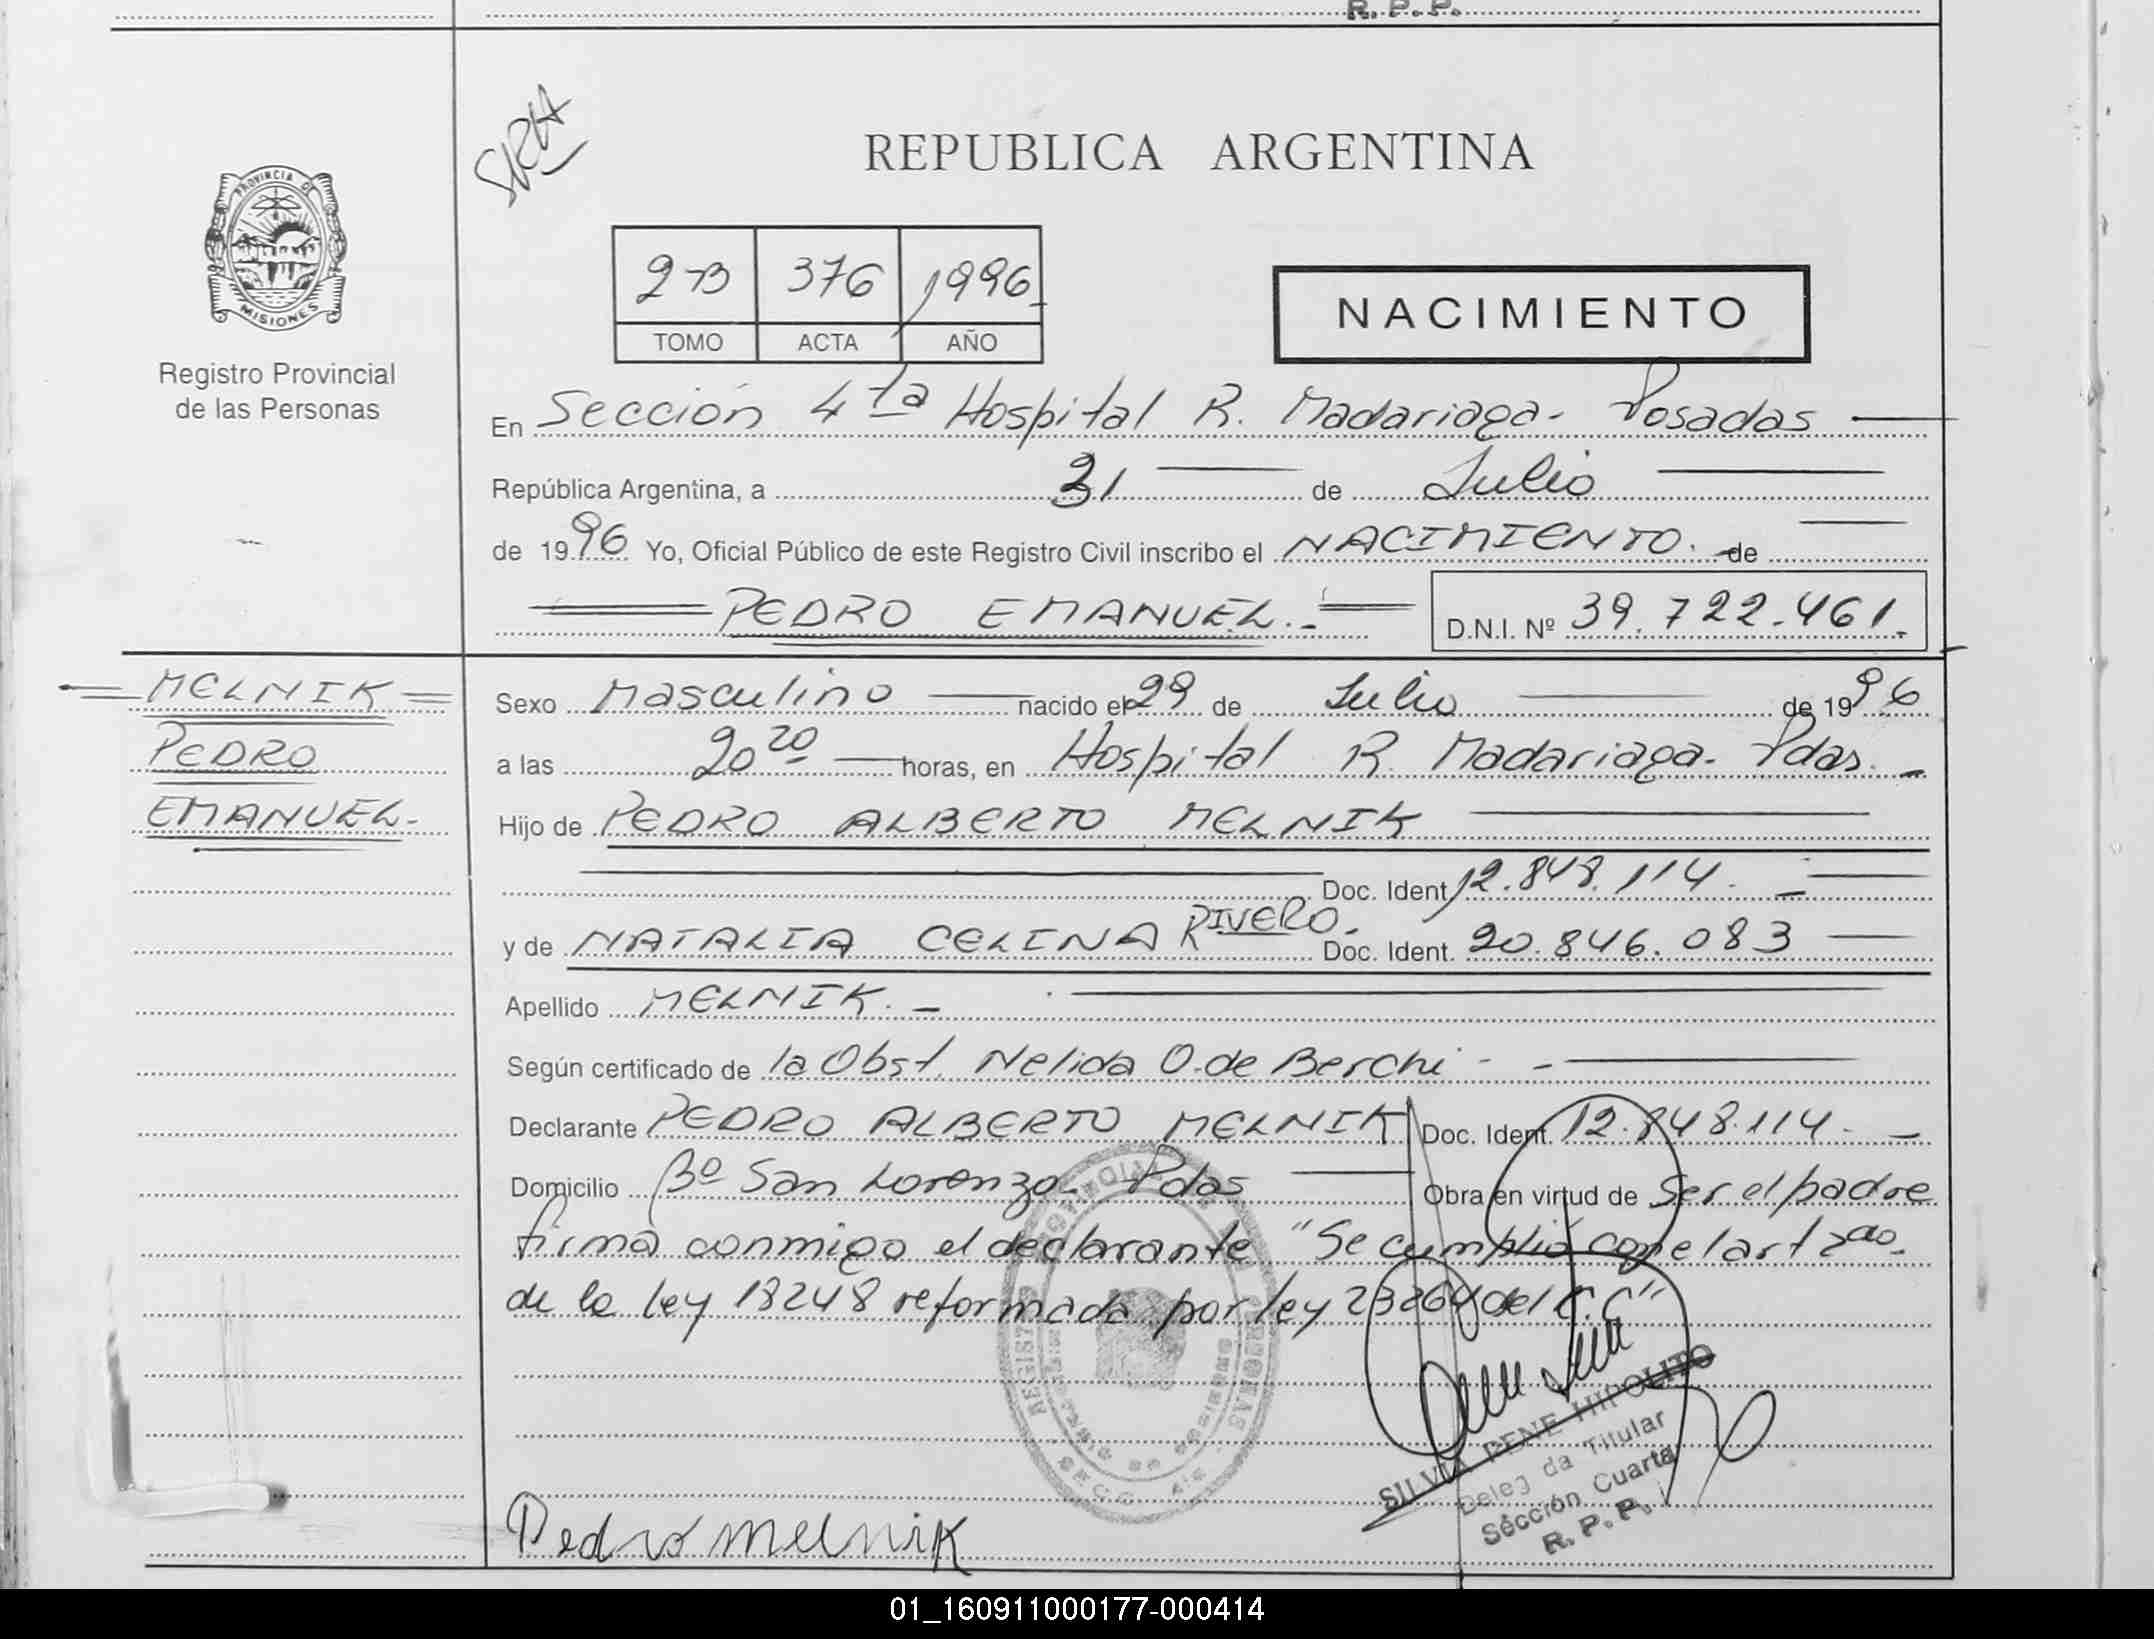 R. P. P.
SRH
REPUBLICA ARGENTINA
PROVINCIA DE
MISIONES
Registro Provincial
de las Personas
2-B 376 1996
TOMO ACTA AÑO
NACIMIENTO
En Sección 4ta Hospital R. Madariaga- Posadas
República Argentina, a 31 de Julio
de 1996 Yo, Oficial Público de este Registro Civil inscribo el NACIMIENTO. de
PEDRO EMANUEL.- D.N.I. Nº 39.722.461.
MELNIK
PEDRO
EMANUEL.
Sexo Masculino nacido el 29 de Julio de 1996
a las 20 20 horas, en Hospital R. Madariaga- Pdas.
Hijo de PEDRO ALBERTO MELNIK
Doc. Ident 12.848.114.
y de NATALIA CELINA RIVERO. Doc. Ident. 20.846.083
Apellido MELNIK.-
Según certificado de la Obst. Nelida O. de Berchi -
Declarante PEDRO ALBERTO MELNIK Doc. Ident. 12.848.114.-
Domicilio Bº San Lorenzo- Pdas Obra en virtud de Ser el padre
firma conmigo el declarante "Se cumplió con el art 2do.
de la ley 18248 reformada por ley 23264 del C.C"
SILVIA RENE HIPOLITO
Delegada Titular
Sección Cuarta
R. P. P.
Pedro Melnik
01_160911000177-000414